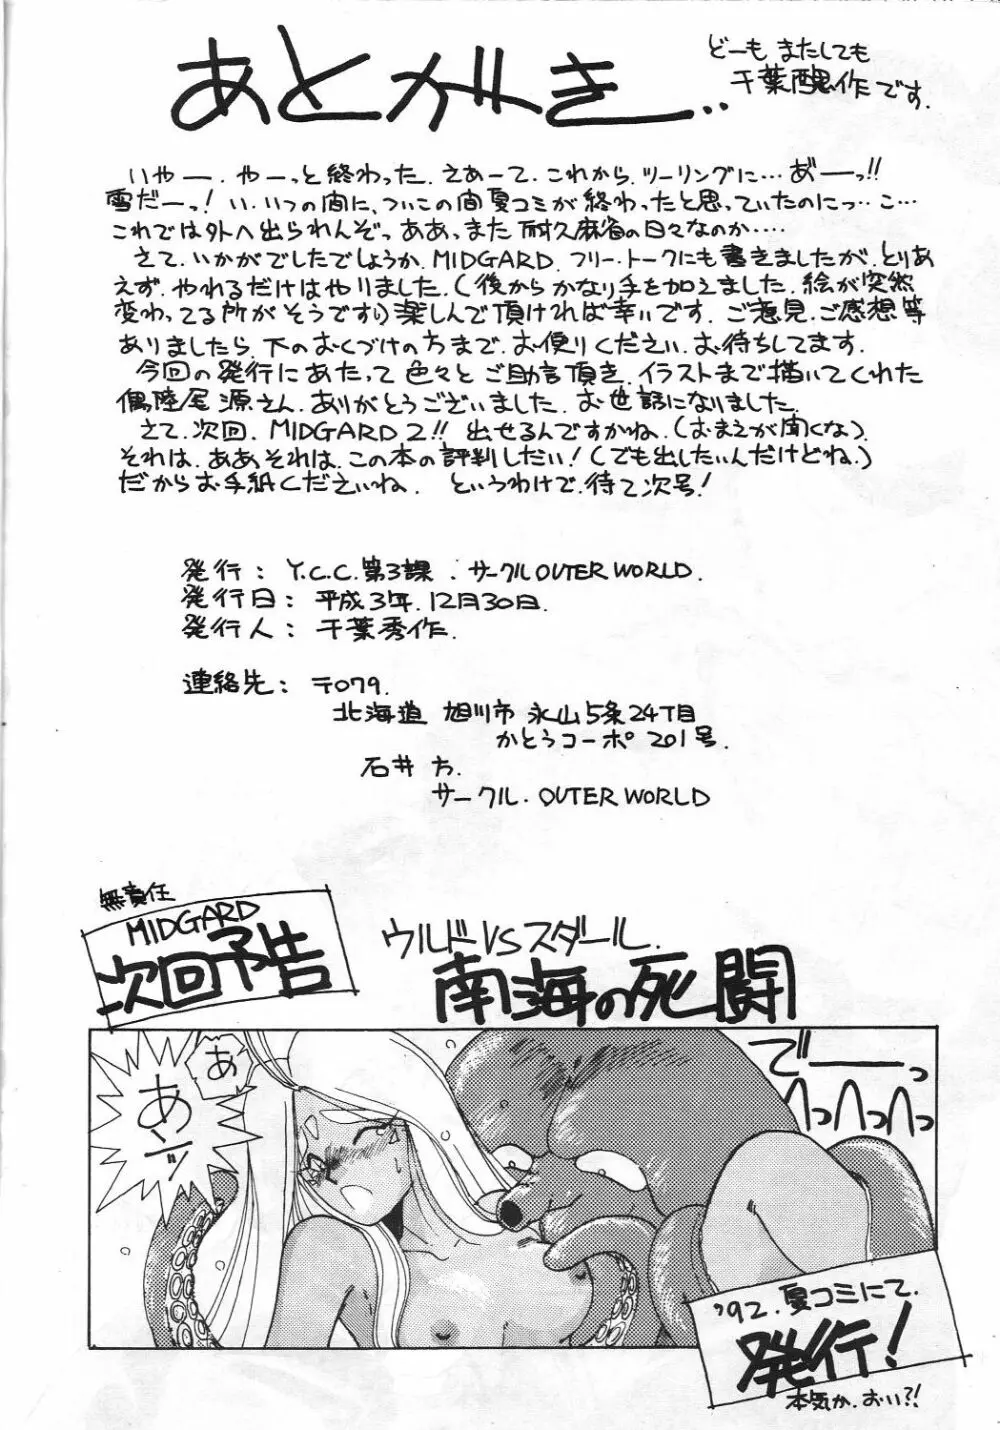 あとがき..
どーも またしても
千葉醜作です.
いやー.やーっと終わった.さあーて.これから.ツーリングに…あ゛ーっ!!
雪だーっ! い.いつの間に、ついこの間夏コミが終わったと思っていたのにっ…こ…
これでは外へ出られんぞっ ああっ また 耐久麻雀の日々なのか‥‥
さて.いかがでしたでしょうか.MIDGARD.フリー・トークにも書きましたが.とりあ
えず.やれるだけはやりました.(後からかなり手を加えました.絵が突然
変わってる所がそうです)楽しんで頂ければ幸いです.ご意見.ご感想等
ありましたら.下のおくづけのちまで.お便りください.お待ちしてます.
今回の発行にあたって 色々とご助言頂き.イラストまで描いてくれた
偶陸尾源さん.ありがとうございました.お世話になりました.
さて.次回.MIDGARD2!! 出せるんですかね.(おまえが聞くな).
それは.ああそれは.この本の評判しだい!(でも出したいんだけどね.)
だからお手紙くださいね. というわけで.待て次号!
発行: Y.C.C.第3課.サークルOUTER WORLD.
発行日: 平成3年.12月30日.
発行人: 千葉秀作.
連絡先: 〒079.
北海道 旭川市 永山5条24丁目
かとうコーポ 201号.
石井 方.
サークル.OUTER WORLD
無責任
MIDGARD
次回予告
ウルドVSスダール.
南海の死闘
あ
あンッ
でーーっ
へっへっへっ
'92.夏コミにて.
発行!
本気か.おい?!